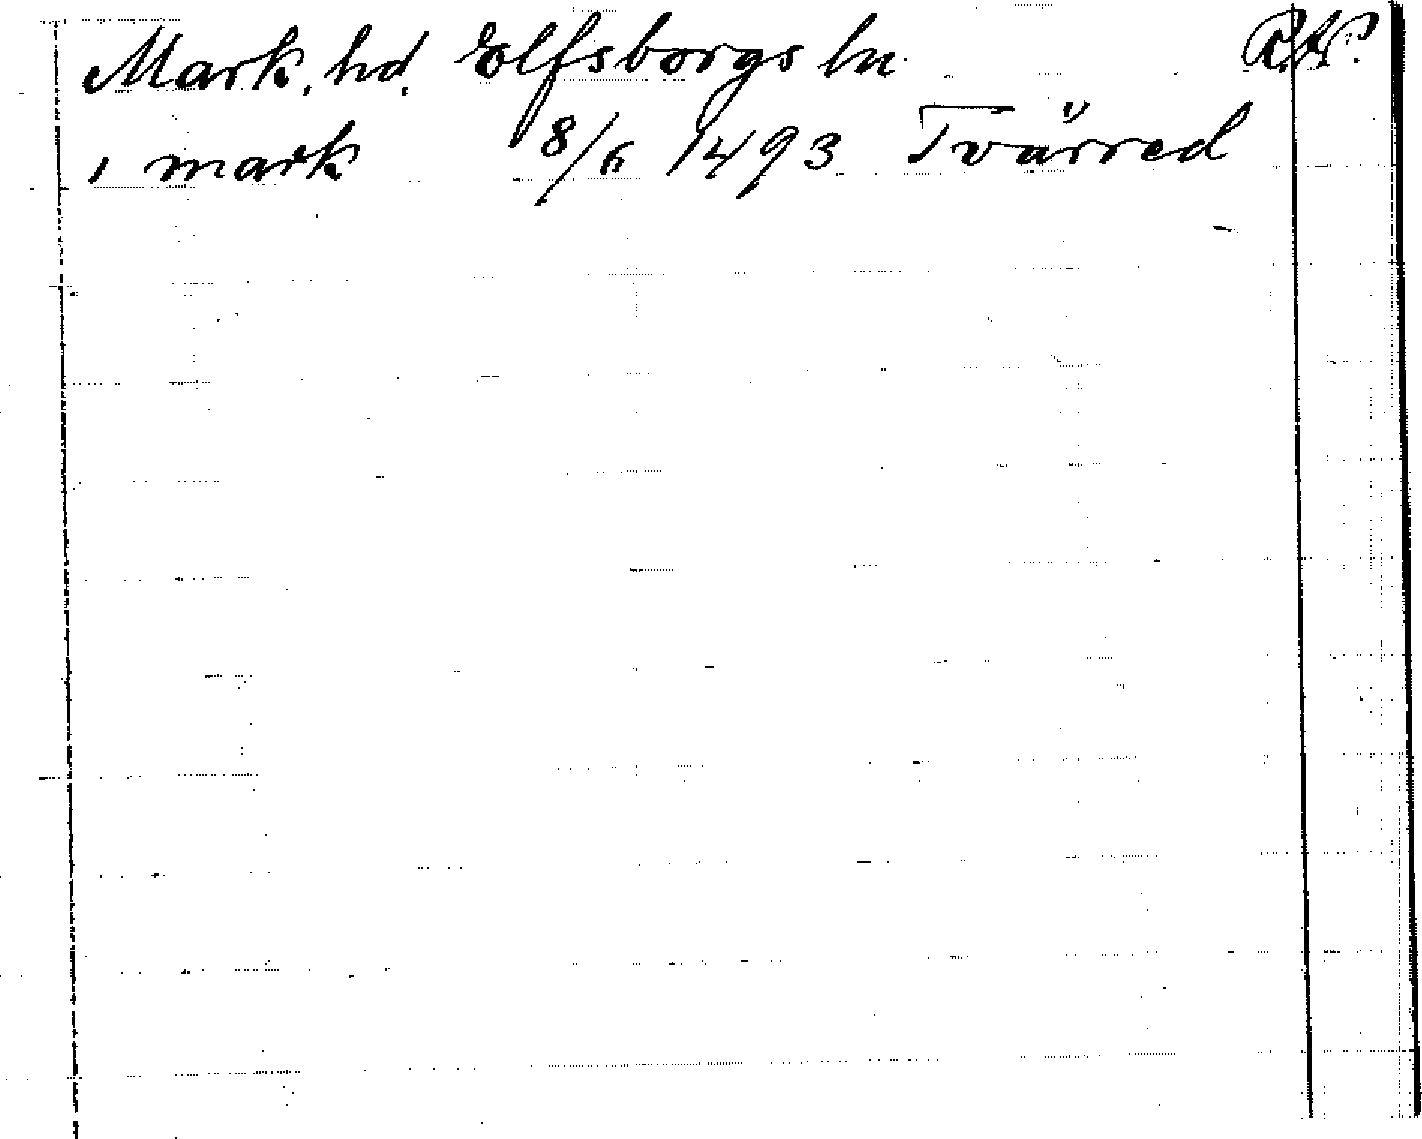 Mark, hd. Elfsborgs ln. R.A.P.
1 mark 8/6 1493 Tvärred